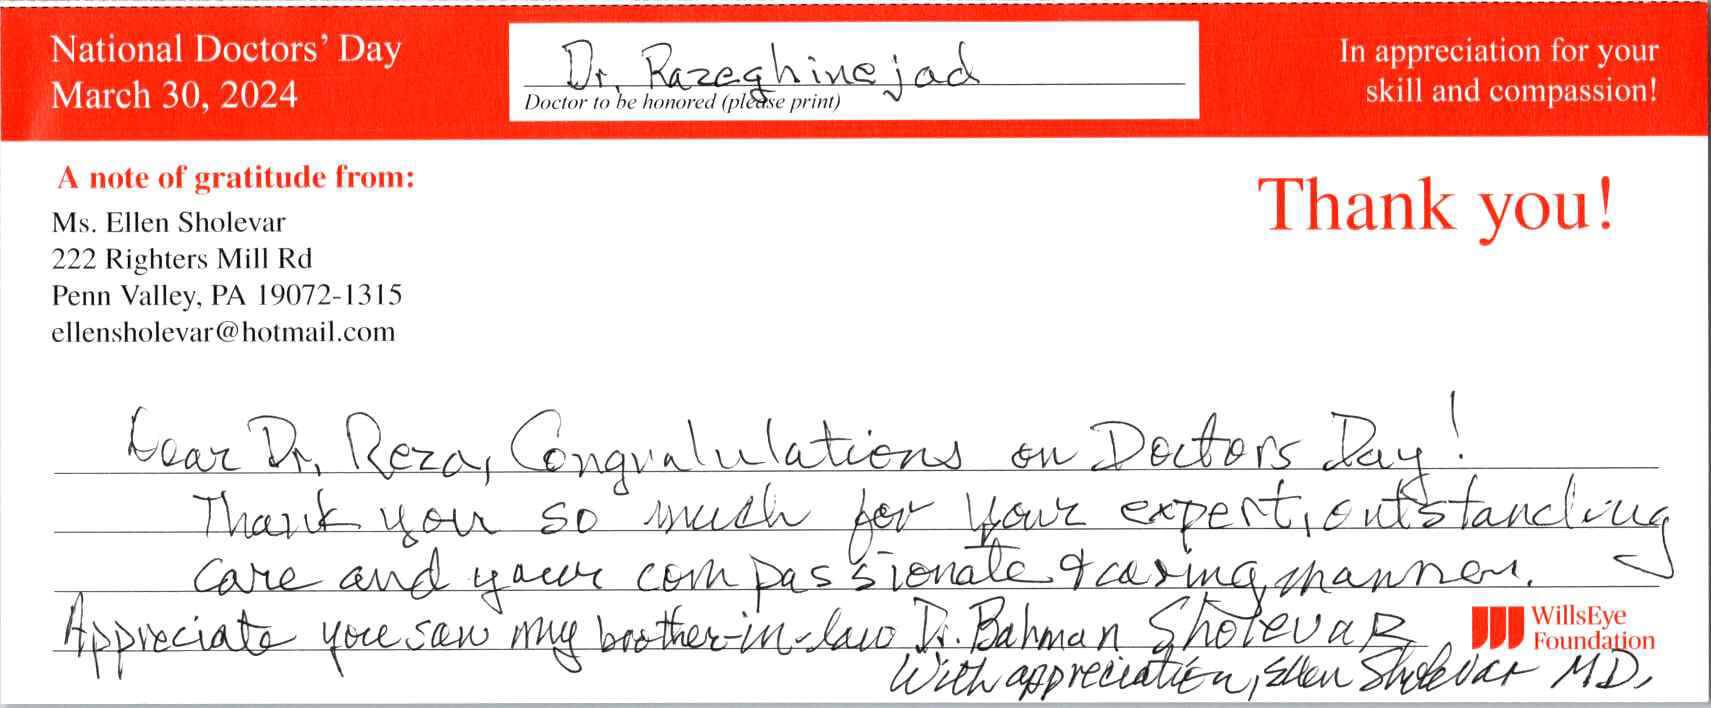 National Doctors' Day
March 30, 2024
Dr. Razeghinejad
Doctor to be honored (please print)
In appreciation for your
skill and compassion!
A note of gratitude from:
Ms. Ellen Sholevar
222 Righters Mill Rd
Penn Valley, PA 19072-1315
ellensholevar@hotmail.com
Thank you!
Dear Dr. Reza, Congratulations on Doctors Day!
Thank you so much for your expert, outstanding
care and your compassionate & caring manner.
Appreciate you saw my brother-in-law Dr. Bahman Sholevar
With appreciation, Ellen Sholevar MD.
WillsEye
Foundation